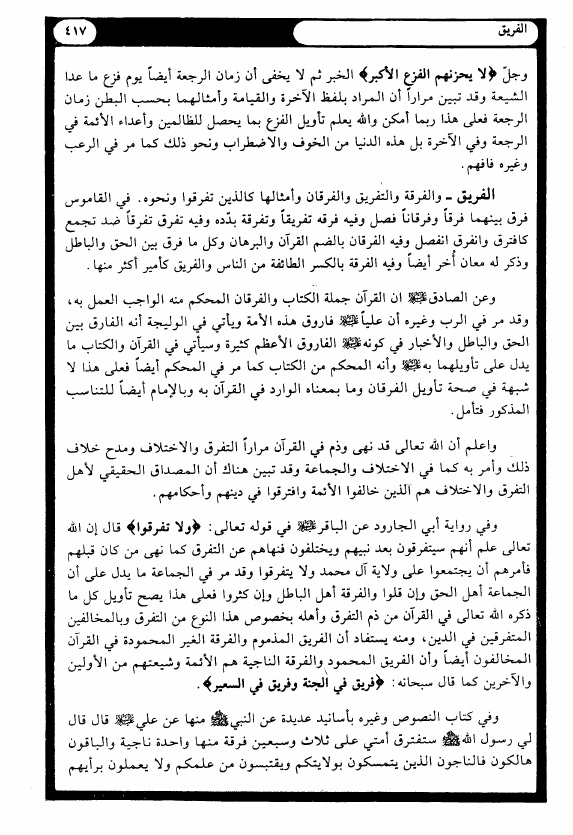 الفريق
٤١٧
وجلّ ﴿لا يحزنهم الفزع الأكبر﴾ الخبر ثم لا يخفى أن زمان الرجعة أيضاً يوم فزع ما عدا
الشيعة وقد تبين مراراً أن المراد بلفظ الآخرة والقيامة وأمثالهما بحسب البطن زمان
الرجعة فعلى هذا ربما أمكن والله يعلم تأويل الفزع بما يحصل للظالمين وأعداء الأئمة في
الرجعة وفي الآخرة بل هذه الدنيا من الخوف والاضطراب ونحو ذلك كما مر في الرعب
وغيره فافهم.
الفريق ـ والفرقة والتفريق والفرقان وأمثالها كالذين تفرقوا ونحوه. في القاموس
فرق بينهما فرقاً وفرقاناً فصل وفيه فرقه تفريقاً وتفرقة بدّده وفيه تفرق تفرقاً ضد تجمع
كافترق وانفرق انفصل وفيه الفرقان بالضم القرآن والبرهان وكل ما فرق بين الحق والباطل
وذكر له معان أُخر أيضاً وفيه الفرقة بالكسر الطائفة من الناس والفريق كأمير أكثر منها.
وعن الصادق عليه السلام ان القرآن جملة الكتاب والفرقان المحكم منه الواجب العمل به،
وقد مر في الرب وغيره أن علياً عليه السلام فاروق هذه الأمة ويأتي في الوليجة أنه الفارق بين
الحق والباطل والأخبار في كونه عليه السلام الفاروق الأعظم كثيرة وسيأتي في القرآن والكتاب ما
يدل على تأويلهما به عليه السلام وأنه المحكم من الكتاب كما مر في المحكم أيضاً فعلى هذا لا
شبهة في صحة تأويل الفرقان وما بمعناه الوارد في القرآن به وبالإمام أيضاً للتناسب
المذكور فتأمل.
واعلم أن الله تعالى قد نهى وذم في القرآن مراراً التفرق والاختلاف ومدح خلاف
ذلك وأمر به كما في الاختلاف والجماعة وقد تبين هناك أن المصداق الحقيقي لأهل
التفرق والاختلاف هم الذين خالفوا الأئمة وافترقوا في دينهم وأحكامهم.
وفي رواية أبي الجارود عن الباقر عليه السلام في قوله تعالى: ﴿ولا تفرقوا﴾ قال إن الله
تعالى علم أنهم سيتفرقون بعد نبيهم ويختلفون فنهاهم عن التفرق كما نهى من كان قبلهم
فأمرهم أن يجتمعوا على ولاية آل محمد ولا يتفرقوا وقد مر في الجماعة ما يدل على أن
الجماعة أهل الحق وإن قلوا والفرقة أهل الباطل وإن كثروا فعلى هذا يصح تأويل كل ما
ذكره الله تعالى في القرآن من ذم التفرق وأهله بخصوص هذا النوع من التفرق وبالمخالفين
المتفرقين في الدين، ومنه يستفاد أن الفريق المذموم والفرقة الغير المحمودة في القرآن
المخالفون أيضاً وأن الفريق المحمود والفرقة الناجية هم الأئمة وشيعتهم من الأولين
والآخرين كما قال سبحانه: ﴿فريق في الجنة وفريق في السعير﴾.
وفي كتاب النصوص وغيره بأسانيد عديدة عن النبي ﷺ منها عن علي عليه السلام قال قال
لي رسول الله ﷺ ستفترق أمتي على ثلاث وسبعين فرقة منها واحدة ناجية والباقون
هالكون فالناجون الذين يتمسكون بولايتكم ويقتبسون من علمكم ولا يعملون برأيهم